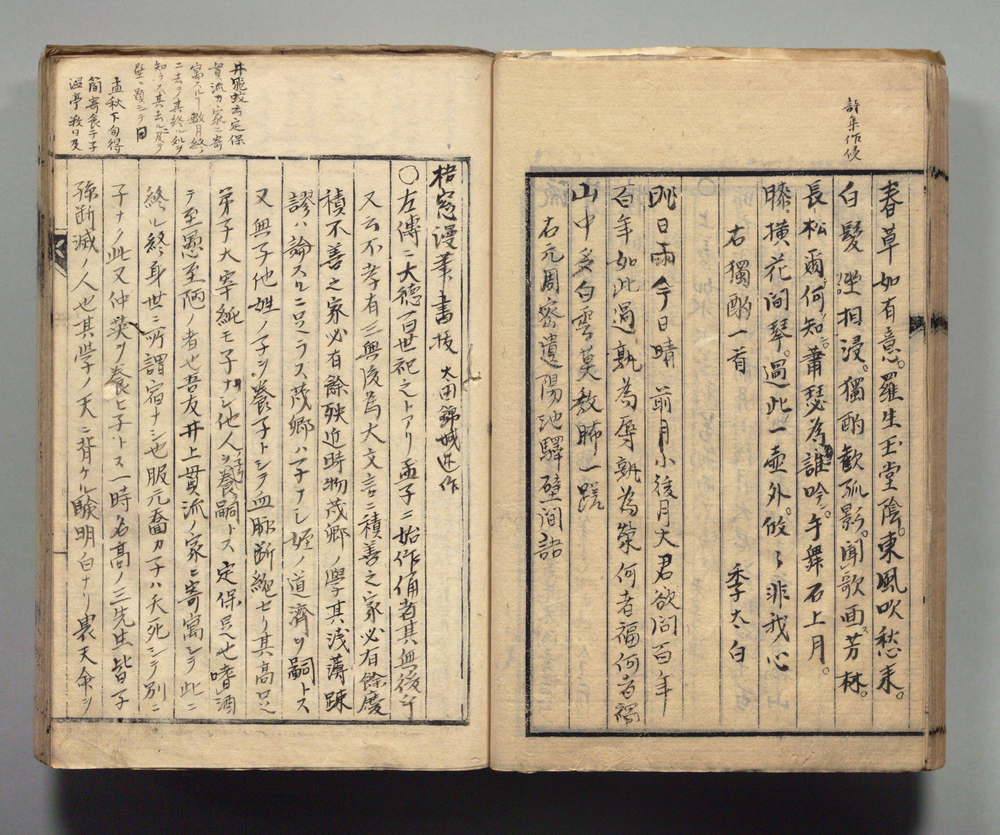 詩集作使
春草如有意。羅生玉堂陰。東風吹愁来。
白髪坐相浸。獨酌歡孤影。聞歌面芳林。
長松爾何知。蕭瑟為誰吟。手舞石上月。
膝横花間琴。過此一壺外。悠々非我心
右獨酌一首　　季太白
昨日雨今日晴　前月小後月大　君欲問百年
百年如此過　孰為辱孰為榮　何者福何者禍
山中多白雲莫教肺一蹉
右元周密遺陽池驛壁間語
梧窓漫筆書抜　大田錦城述作
〇左傳ニ大徳百世祀之トアリ孟子ニ始作俑者其無後乎
又云不孝有三無後為大文言ニ積善之家必有餘慶
積不善之家必有餘殃近時物茂郷ノ學其浅薄踈
謬ハ論スルニ足ラス茂郷ハ子ナシ姪ノ道濟ヲ嗣トス
又無子他姓ノ子ヲ養子トシテ血脈断絶セリ其高足
弟子大宰純モ子ナシ他人ヲ養嗣トス定保是也嗜酒
テ至愚至陋ノ者也吾友井上貫流ノ家ニ寄寓シテ此ニ
終ル終身世ニ所謂宿ナシ也服元喬カ子ハ夭死シテ別ニ
子ナク此又仲英ヲ養ヒ子トス一時名高ノ三先生皆子
孫断滅ノ人也其學ノ天ニ背ケル驗明白ナリ　畏天余ヲ
井
蚊云定保
貫流カ家ニ寄
寓スル
数月終
ニ去ヲ其終ル処ヲ
知ラス其去ル
ニ題シテ曰
孟秋下旬得
簡寄食千子